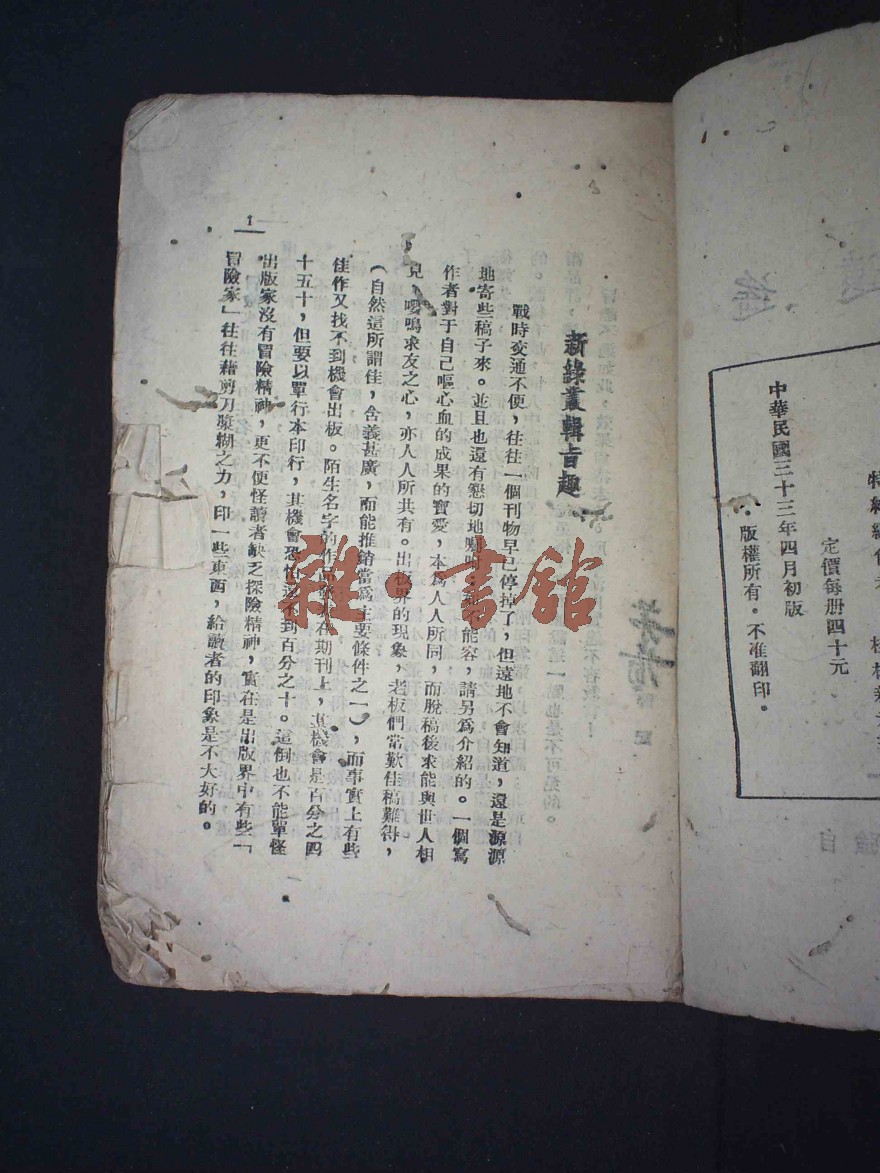 特
中華民國三十三年四月初版
定價每册四十元
版權所有・不准翻印。
自
新綠叢輯旨趣
戰時交通不便，往往一個刊物早已停掉了，但遠地不會知道，還是源源
地寄些稿子來。並且也還有懇切地囑咐：不能容，請另爲介紹的。一個寫
作者對于自己嘔心血的成果的寶愛，本爲人人所同，而脫稿後求能與世人相
見，嚶鳴求友之心，亦人人所共有。出板界的現象，老板們常歎佳稿難得，
（自然這所謂佳，含義甚廣，而能推銷當爲主要條件之一），而事實上有些
佳作又找不到機會出板。陌生名字的作品在期刊上，其機會是百分之四
十五十，但要以單行本印行，其機會恐怕還不到百分之十。這倒也不能單怪
出版家沒有冒險精神，更不便怪讀者缺乏探險精神，實在是出版界中有些「
冒險家」往往藉剪刀漿糊之力，印一些東西，給讀者的印象是不大好的。
1
雜・書舘